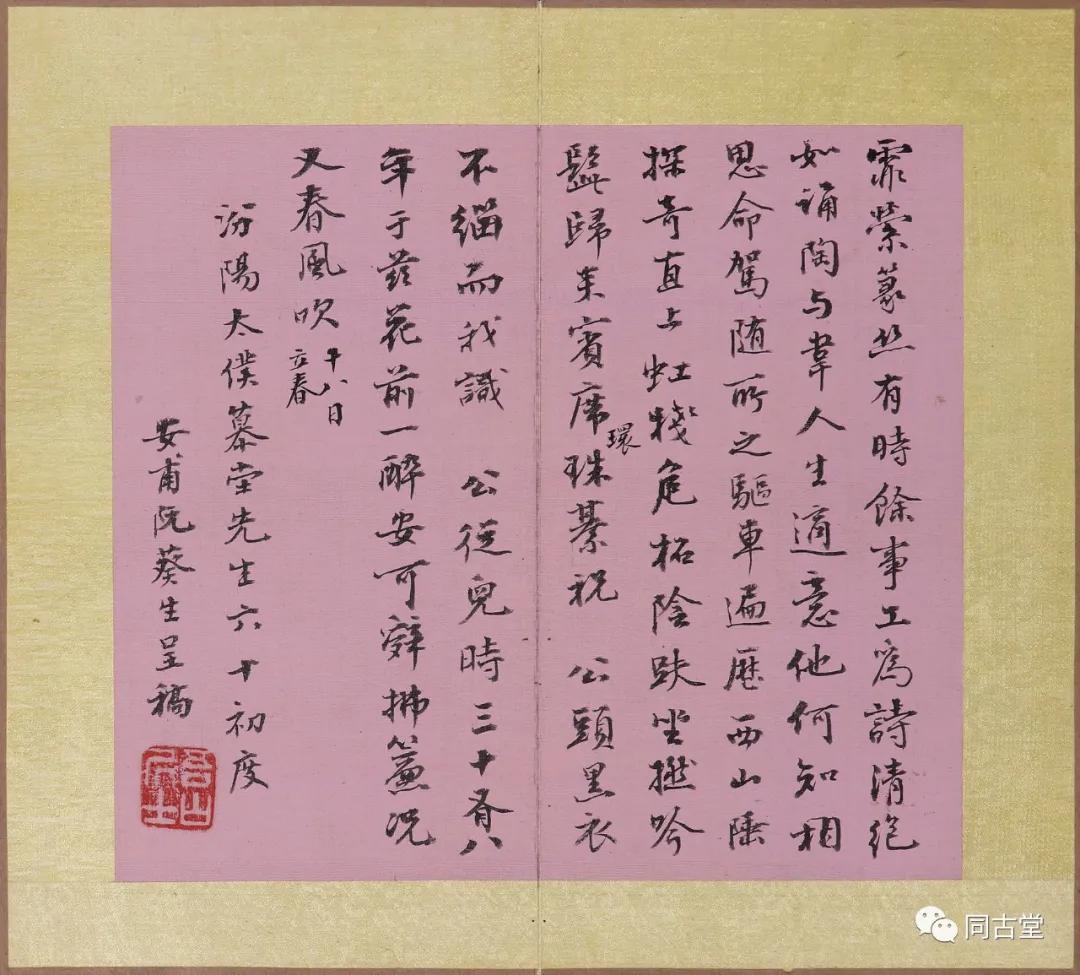 霏縈篆絲有時餘事工爲詩清絶
如誦陶与韋人生適意他何知相
思命駕随所之驅車遍歷西山陲
探奇直上虹棧危柘陰趺坐撚吟
髭歸来賓席環珠綦祝 公頭黑衣
不緇而我識 公從兒時三十有八
年于兹花前一醉安可辭拂簷况
又春風吹 十八日立春
汾陽太僕慕堂先生六十初度
安甫阮葵生呈稿
同古堂